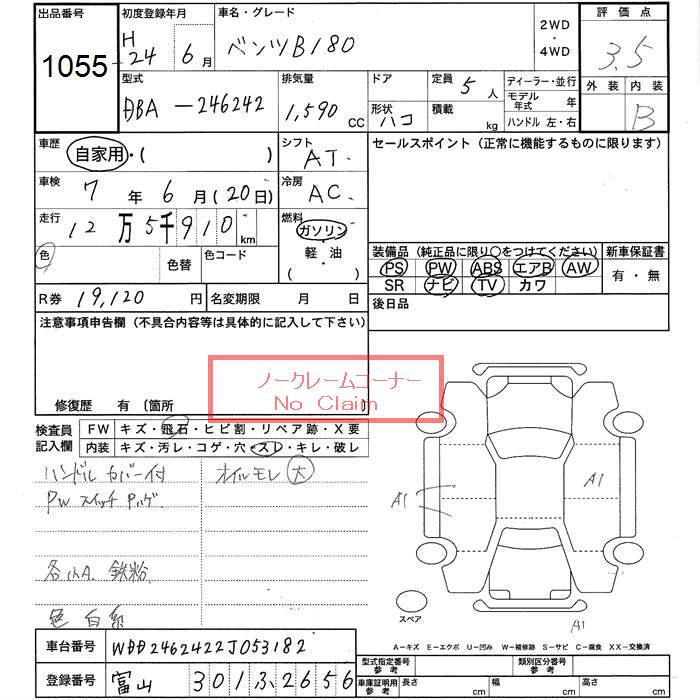 出品番号
1055
初度登録年月
H 24 6月
車名・グレード
ベンツB180
2WD
・
4WD
評価点
3.5
外装 内装
B
型式
DBA-246242
排気量
1,590 CC
ドア
定員 5人
形状 ハコ
積載 kg
ディーラー・並行
モデル年式 年
ハンドル 左・右
車歴
自家用・( )
シフト
AT.
車検
7年6月(20日)
冷房
AC.
走行
12万5千910km
燃料
ガソリン
軽・油
( ・ )
色
色替
色コード
R券 19,120円
名変期限 月 日
セールスポイント (正常に機能するものに限ります)
装備品 (純正品に限り○をつけてください)
PS PW ABS エアB AW
SR ナビ TV カワ
新車保証書
有・無
後日品
注意事項申告欄 (不具合内容等は具体的に記入して下さい)
修復歴 有 〔箇所
ノークレームコーナー
No Claim
検査員
記入欄
FW キズ・飛石・ヒビ割・リペア跡・X要
内装 キズ・汚レ・コゲ・穴・スレ・キレ・破レ
ハンドル カバー付
オイルモレ 大
PW スイッチ
鉄粉
色 白系
A1
A1
A1
スペア
A-キズ E-エクボ U-凹み W-補修跡 S-サビ C-腐食 XX-交換済
車台番号 WDD2462422J053182
登録番号 富山 301ふ2656
型式指定番号
参考
類別区分番号
参考
車庫証明用
参考
長さ cm
幅 cm
高さ cm